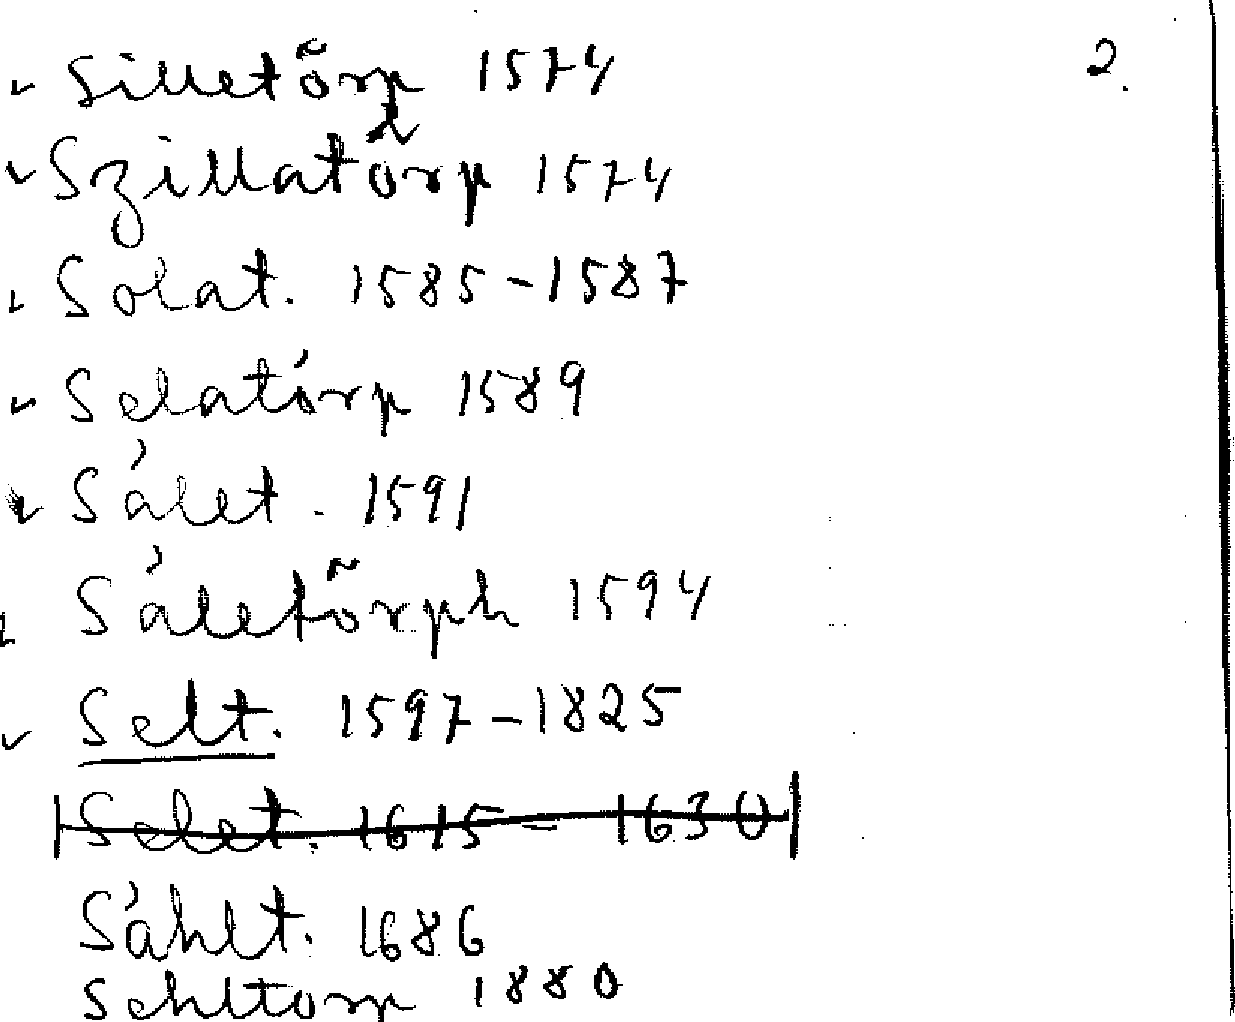 2.
Silletörp 1574
Szillatörp 1574
Solat. 1585-1587
Selatórp 1589
Sálet. 1591
Sáletörph 1594
Selt. 1597-1825
Selet. 1615 - 1630
Sáhlt. 1686
Sehltorp 1880